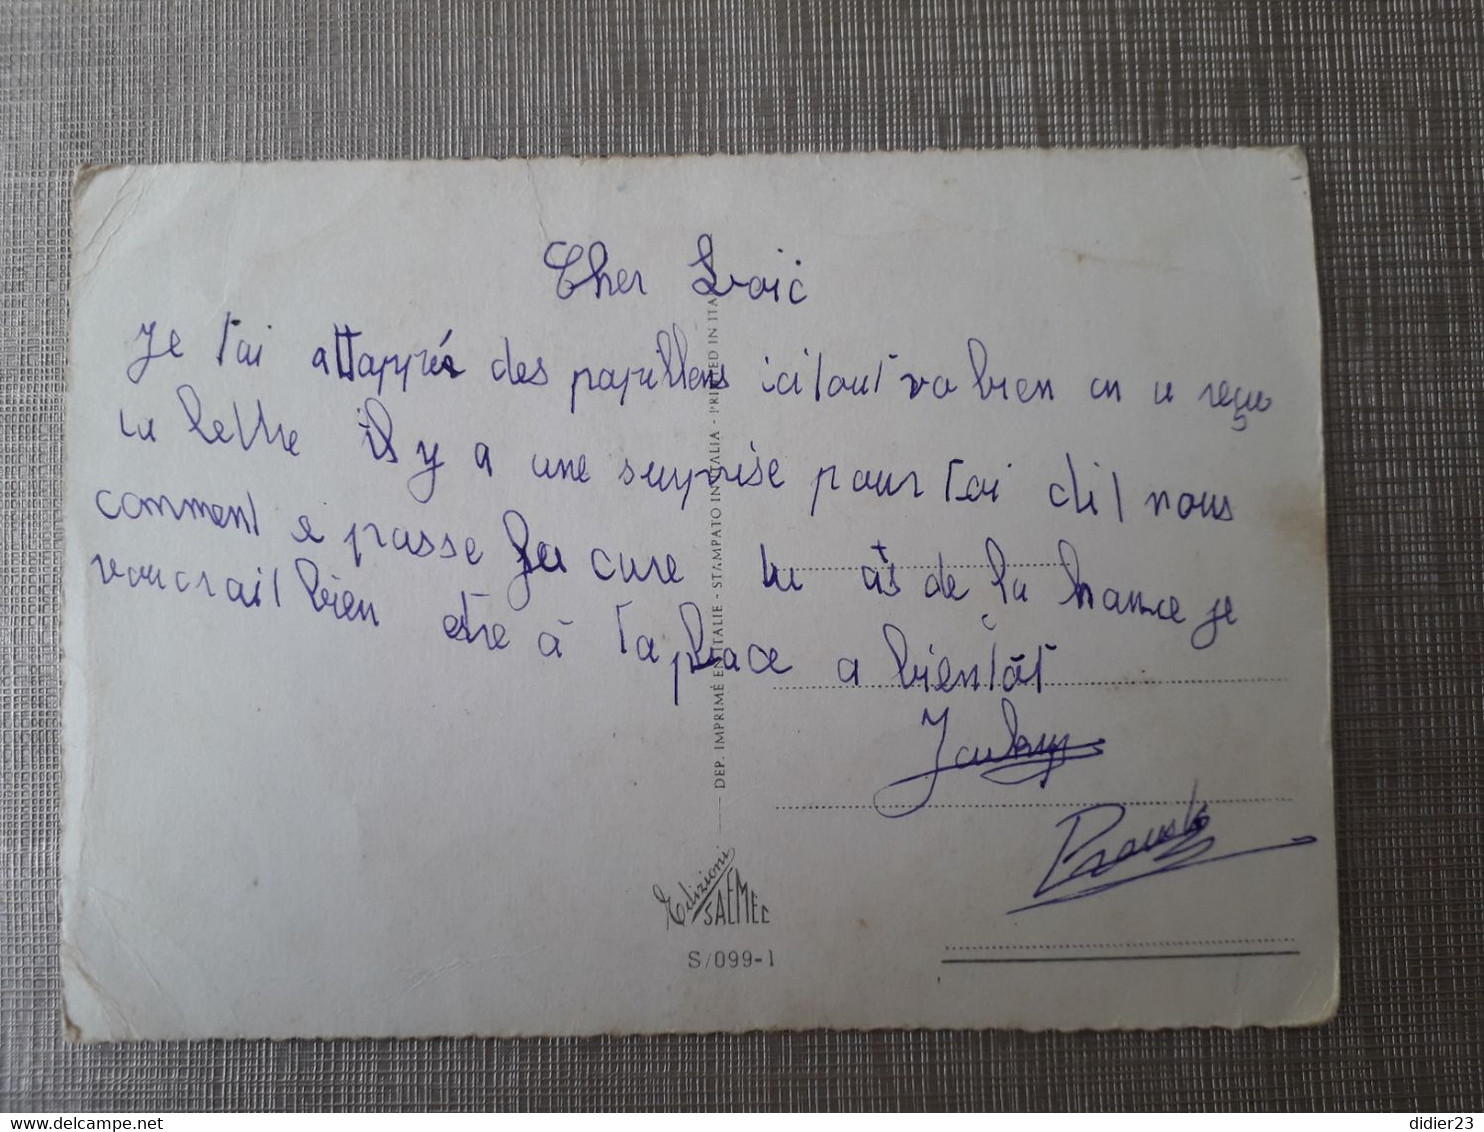 Cher Loïc
Je t'ai attappé des papillons ici tout va bien on a reçu
ta lettre il y a une surprise pour toi dit nous
comment se passe ta cure tu as de la chance je
voudrait bien être à ta place a bientôt
DEP. IMPRIMÉ EN ITALIE - STAMPATO IN ITALIA - PRINTED IN ITA
Edizioni
SAEMEC
S/099-1
didier23